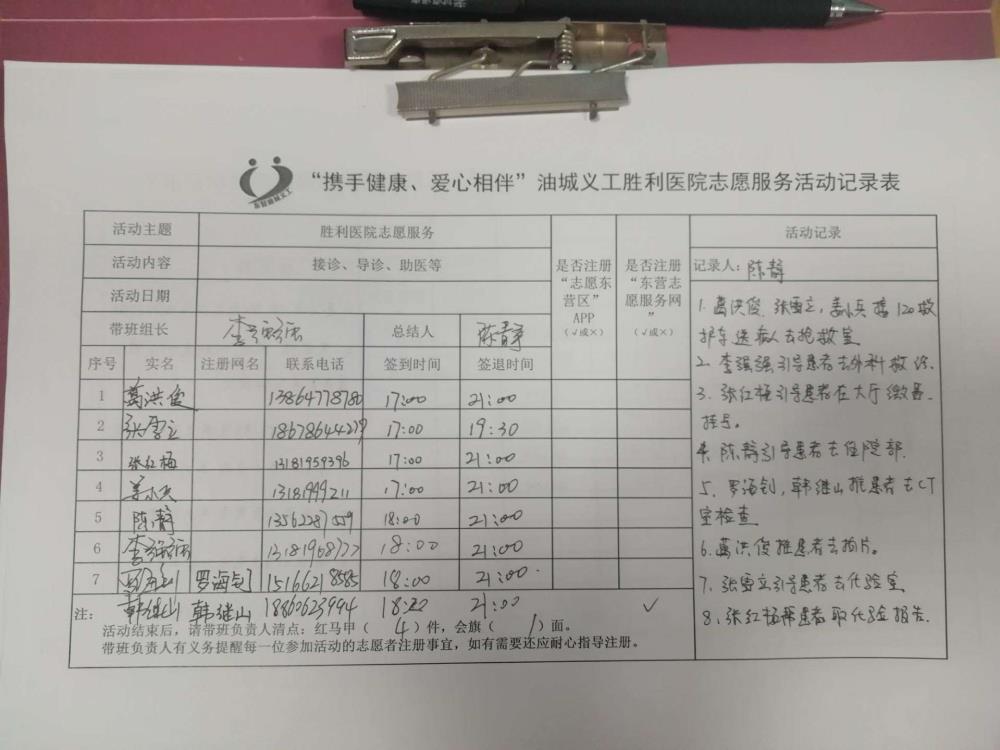 “携手健康、爱心相伴”油城义工胜利医院志愿服务活动记录表
东营油城义工
活动主题 胜利医院志愿服务 是否注册“志愿东营区”APP（√或×） 是否注册“东营志愿服务网”（√或×） 活动记录
活动内容 接诊、导诊、助医等
活动日期
带班组长 李强强 总结人 陈静
序号 实名 注册网名 联系电话 签到时间 签退时间
1 葛洪俊 13864778780 17:00 21:00
2 张雪立 18678644229 17:00 19:30
3 张红梅 13181959396 17:00 21:00
4 姜小兵 13181999211 17:00 21:00
5 陈静 13562287559 18:00 21:00
6 李强强 18:00 21:00
7 罗海钊 15166218585 18:00 21:00
注： 韩继山 韩继山 18860623994 18:20 21:00 √
活动结束后，请带班负责人清点：红马甲（ 4 ）件，会旗（ 1 ）面。
带班负责人有义务提醒每一位参加活动的志愿者注册事宜，如有需要还应耐心指导注册。
记录人：陈静
1. 葛洪俊、张雪立，姜小兵接120救
护车送病人去抢救室
2. 李强强引导患者去外科救治.
3. 张红梅引导患者在大厅缴费.
挂号。
4. 陈静引导患者去住院部.
5. 罗海钊，韩继山推患者去CT
室检查
6. 葛洪俊推患者去拍片。
7. 张雪立引导患者去化验室
8. 张红梅帮患者取化验报告.